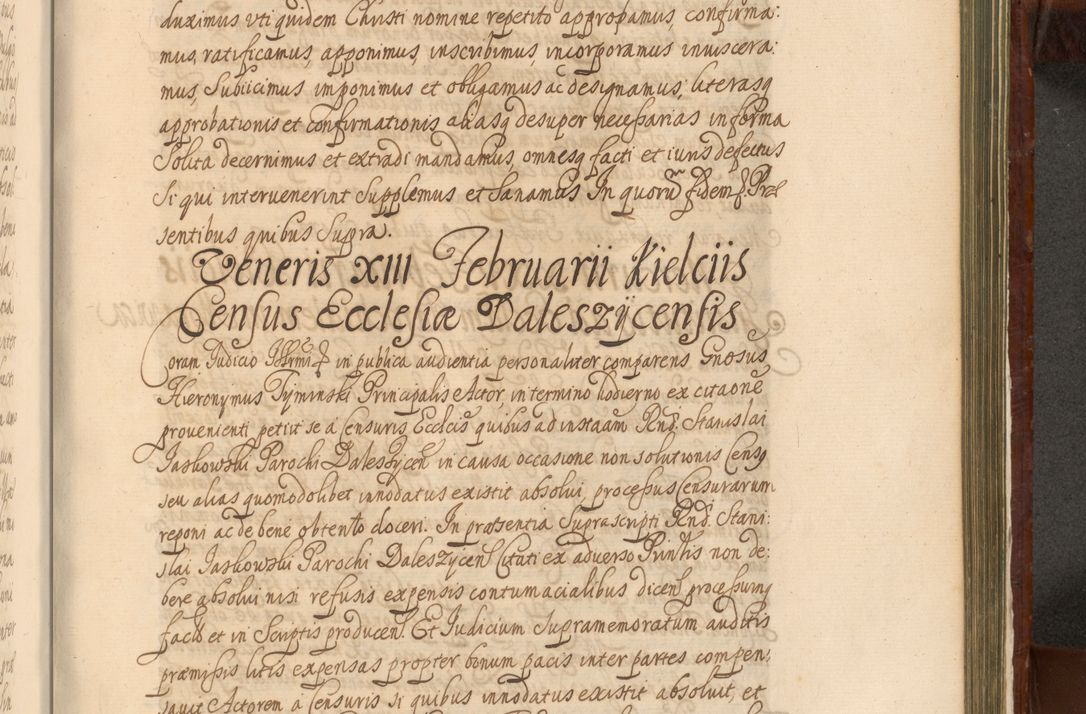 duximus vti quidem Christi nomine repetito approbamus, confirma:
mus, ratificamus, apponimus, inscribimus, incorporamus inuiscera:
mus, Subiicimus imponimus et obligamus ac designamus, literasq
approbationis et confirmationis aliasq desuper necessarias in forma
Solita decernimus et extradi mandamus, omnesq facti et iuris defectus
Si qui intervenerint Supplemus et Sanamus In quorũ fidem Præ
sentibus quibus Supra.
Veneris XIII Februarii Kielciis
Census Ecclesiæ Daleszÿcensis
Coram Judicio in publica audientia personaliter comparens Gnosus
Hieronymus Tyminski Principalis Actor, in termino hodierno ex citaone
provenienti petiit se á Censuris Ecclcis quibus ad instaam Rnd. Stanislai
Jaskowski Parochi Daleszycen in causa occasione non solutionis Censq
seu alias quomodolibet innodatus existit absolui, processus Censurarum
reponi ac de bene obtento doceri. In præsentia Suprascripti Rnd. Stani:
slai Jaskowski Parochi Daleszycen Citati ex adverso Printis non de:
bere absolui nisi refusis expensis contumacialibus dicen processumq
facti et in Scriptis producen. Et Judicium Supramemoratum auditis
præmissis litis expensas propter bonum pacis inter partes compen:
sauit Actorem a Censuris si quibus innodatus existit absoluit, et